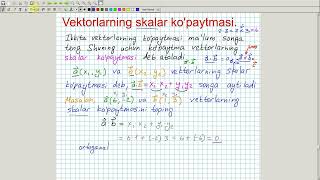 Vektorlarning skalar ko'paytmasi.
Ikkita vektorlarning ko'paytmasi ma'lum songa
teng. Shuning uchun ko'paytma vektorlarning
skalar ko'paytmasi deb ataladi
a(x₁, y₁) va b(x₂, y₂) vektorlarning skalar
ko'paytmasi deb, a·b = x₁x₂ + y₁y₂ songa aytiladi
Masalan, a(6, -2) va b(1, 3) vektorlarning
skalar ko'paytmasini toping
a·b = x₁x₂ + y₁y₂
= 6·1 + (-2)·3 = 6 + (-6) = 0
ortogonal